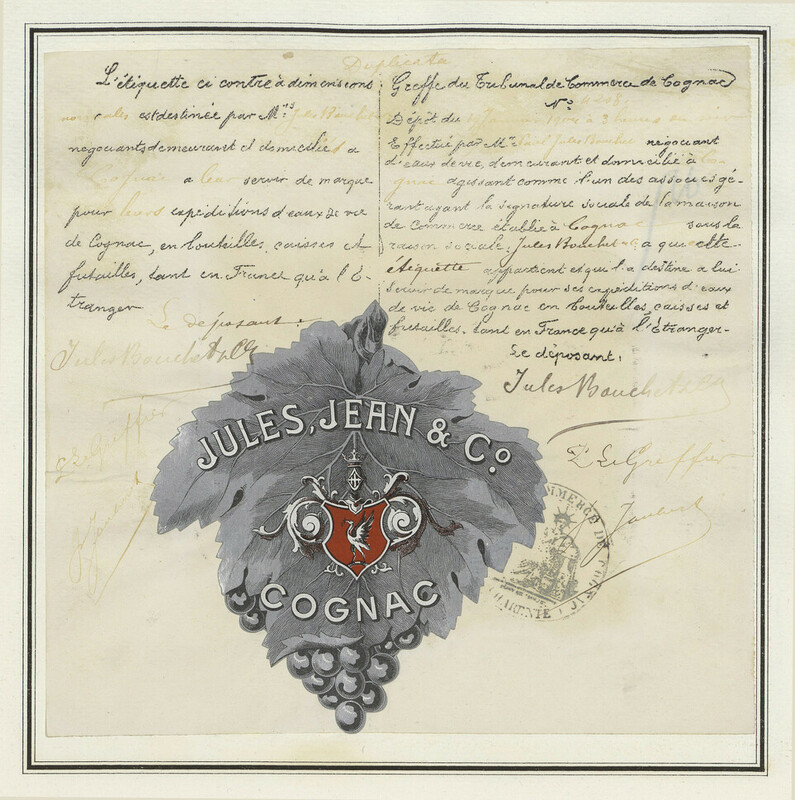 Duplicata
L'étiquette ci contre à dimensions
est destinée par Mrs Jules Bouchet
negociants demeurant et domiciliés a
a leur servir de marque
pour leurs expéditions d'eaux de vie
de Cognac, en bouteilles, caisses et
futailles, tant en France qu'à l'É-
tranger
Le déposant:
Jules Bouchet & Co
Le Greffier
Greffe du Tribunal de Commerce de Cognac
No
Dépôt du à 3 heures
Effectué par Mr Jules Bouchet négociant
d'eaux de vie, demeurant et domicilié à Co-
gnac agissant comme l'un des associés gé-
rant ayant la signature sociale de la maison
de Commerce établie à Cognac sous la
raison sociale: Jules Bouchet & Co a qui cette
étiquette appartient et qui l'a destine a lui
servir de marque pour ses expéditions d'eaux
de vie de Cognac en bouteilles, caisses et
futailles, tant en France qu'à l'Étranger-
Le déposant,
Jules Bouchet & Co
Le Greffier
Jaubert
JULES, JEAN & Co.
COGNAC
COMMERCE DE COGNAC
CHARENTE